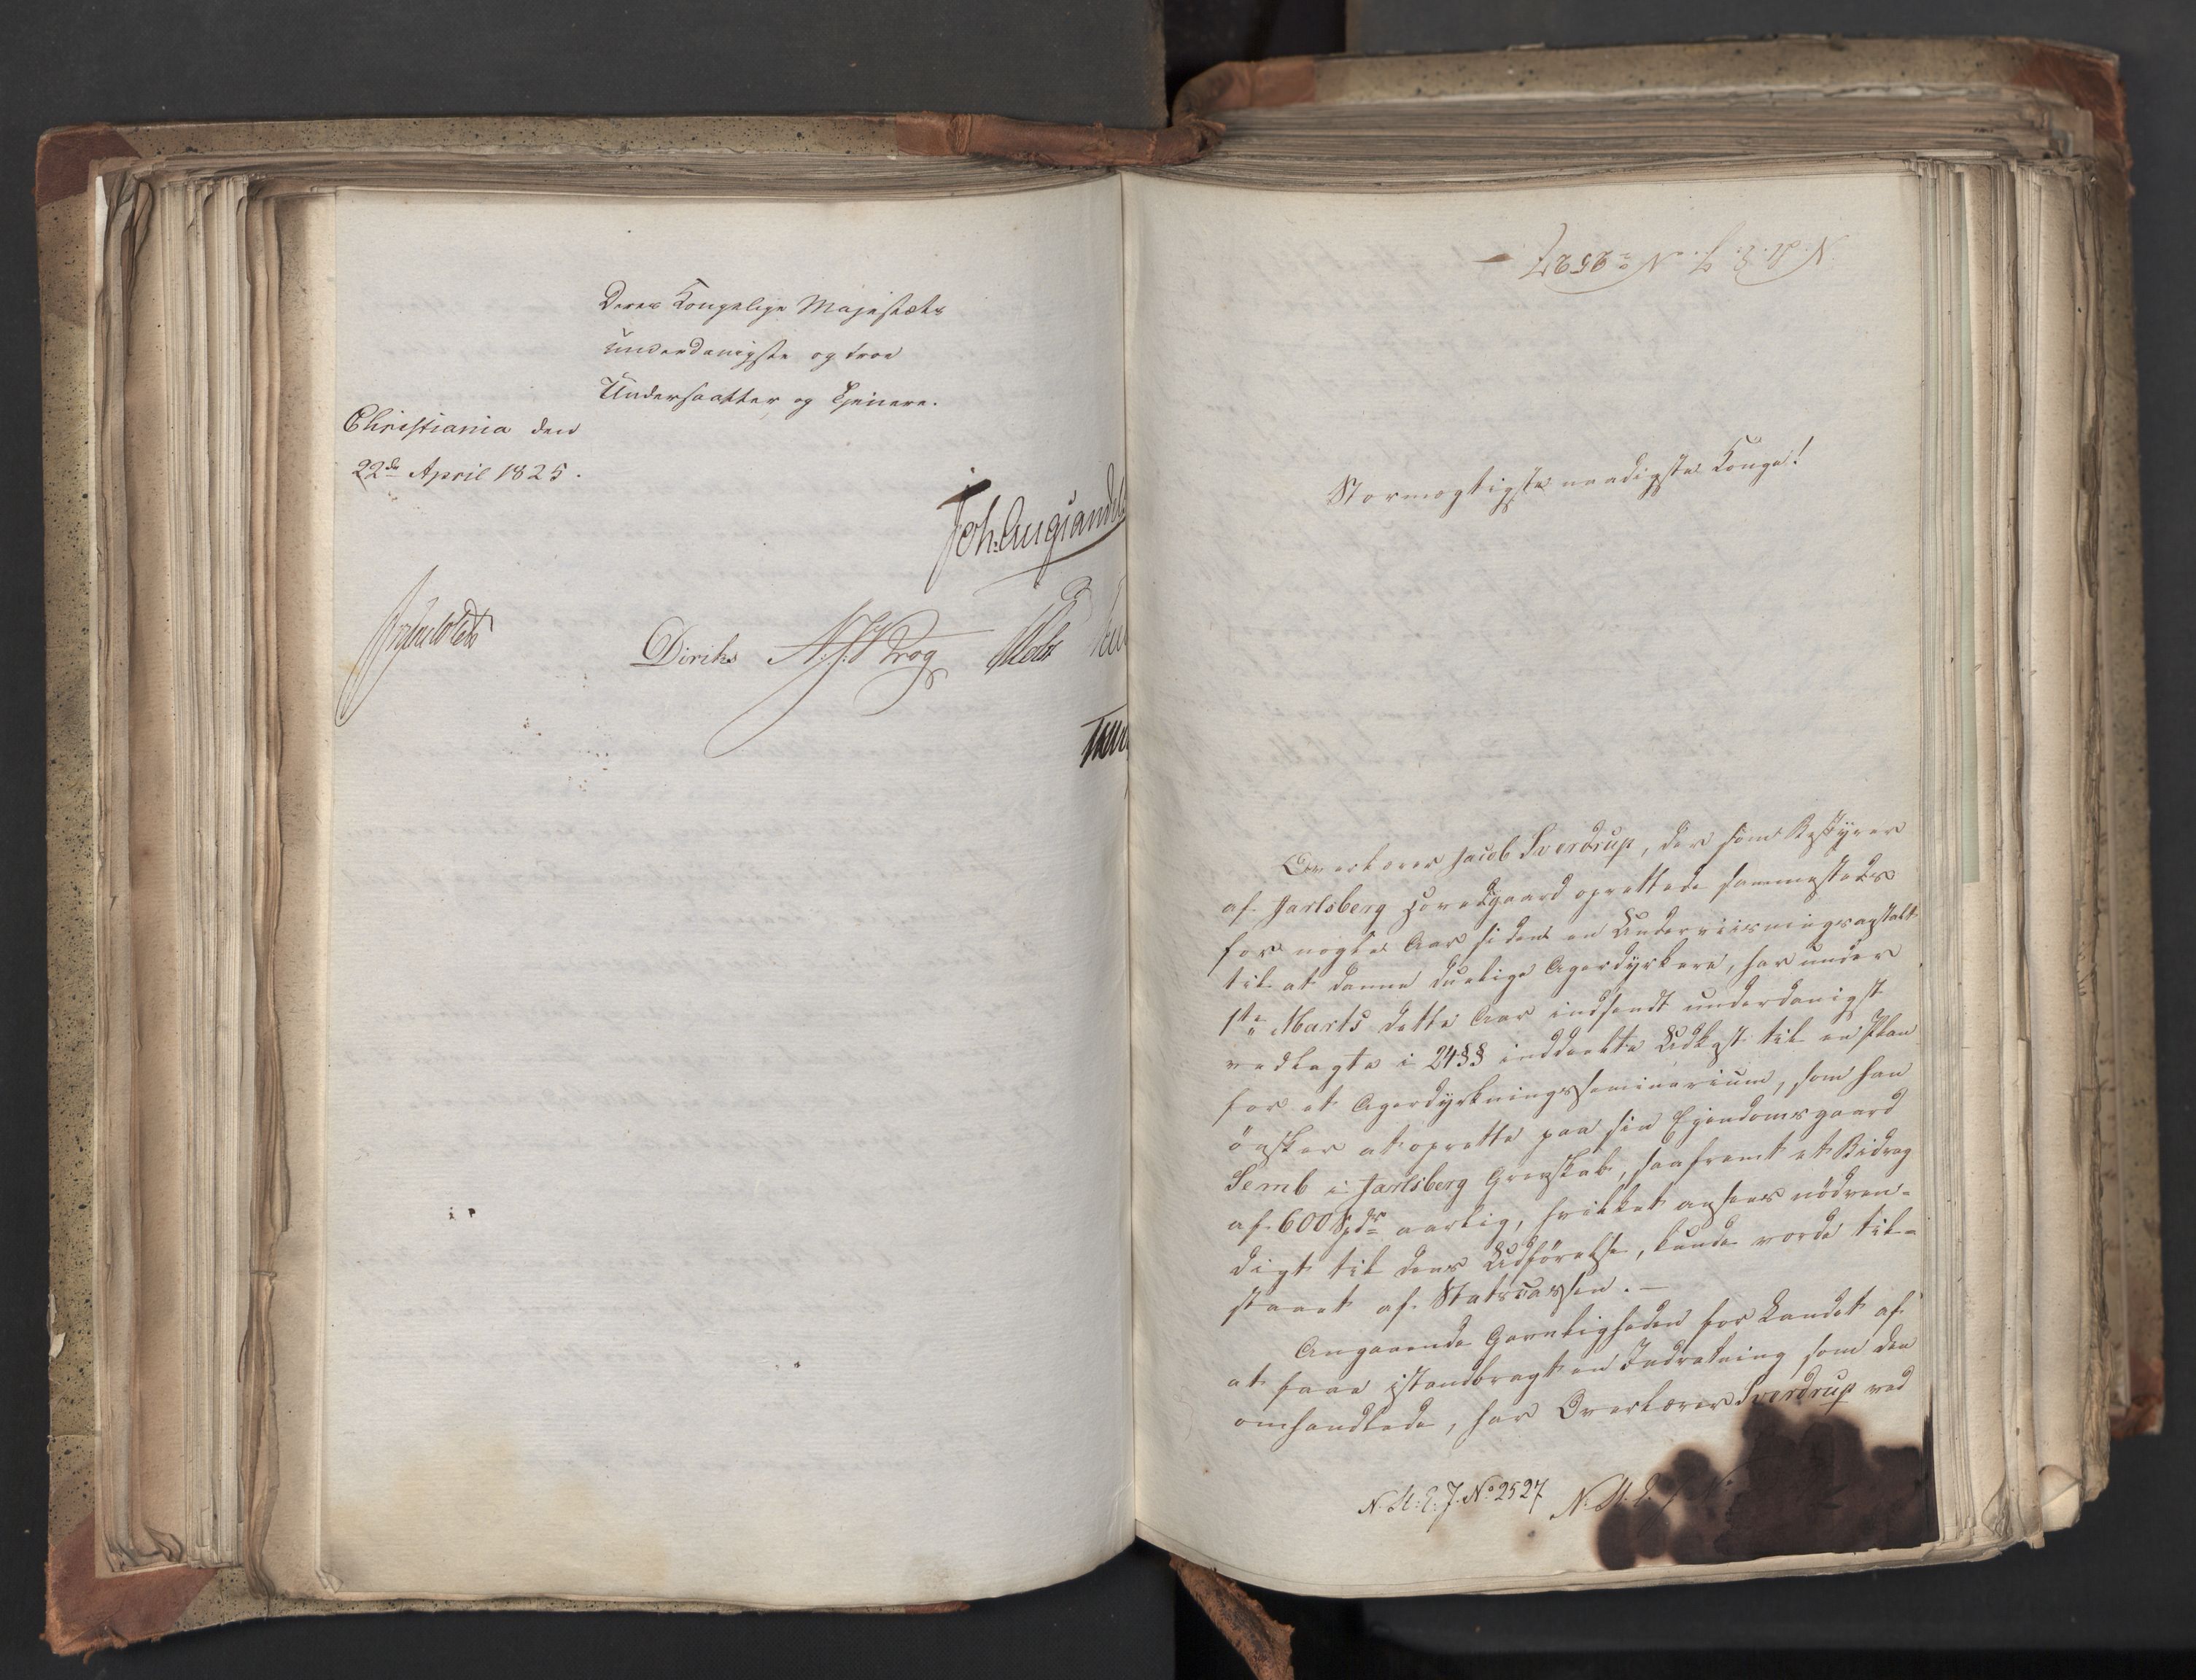 Deres Kongelige Majestæts
underdanigste og troe
Undersaatter og Tjenere.
Christiania den
22de April 1825.
Joh: Aug: Sandels
Diriks
N. J. H. Krog
N. St. E. J. No 2527
Stormægtigste naadigste Konge!
Overlærer Jacob Sverdrup, der som Bestyrer
af Jarlsberg Hovedgaard oprettede sammesteds
for nogle Aar siden en Underviisningsanstalt
til at danne duelige Agerdyrkere, har under
1ste Marts dette Aar indsendt underdanigst
vedlagte i 24 §§ inddeelte Udkast til en Plan
for et Agerdyrkningsseminarium, som han
ønsker at oprette paa sin Ejendomsgaard
Semb i Jarlsberg Grevskab, saafremt et Bidrag
af 600 Spdr aarlig, hvilket ansees nödven-
digt til dens Udförelse, kunde vorde til-
staaet af Statscassen. —
Angaaende Gavnligheden for Landet af
at faae istandbragt en Indretning som den
omhandlede, har Overlærer Sverdrup ved
N. St. E. J. No 2527 N. St. E. J. No